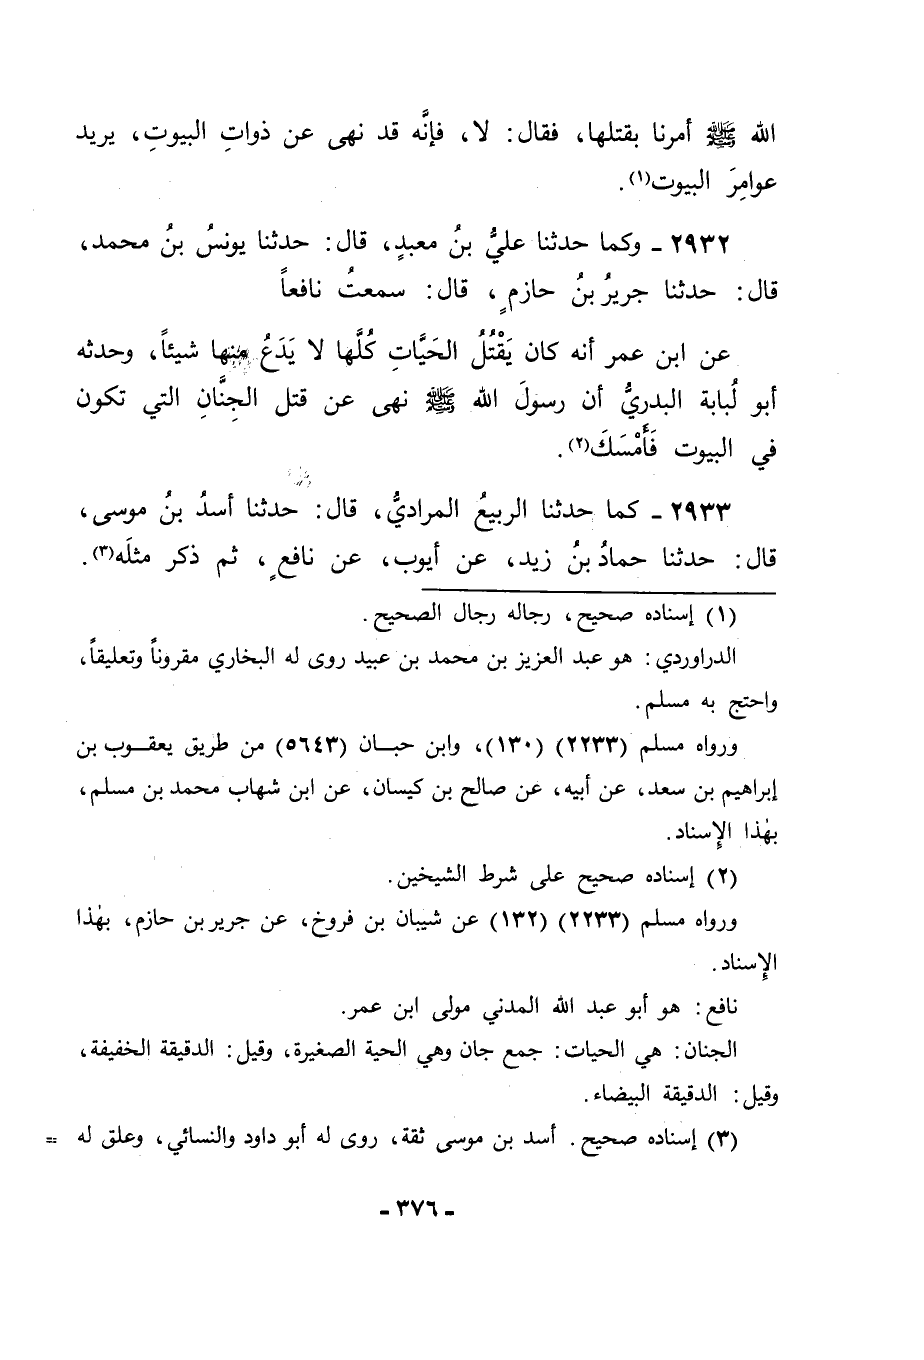 الله ﷺ أمرنا بقتلها، فقال: لا، فإنَّه قد نهى عن ذواتِ البيوتِ، يريد
عوامِرَ البيوت(١).
٢٩٣٢ ـ وكما حدثنا عليُّ بنُ معبدٍ، قال: حدثنا يونسُ بنُ محمد،
قال: حدثنا جريرُ بنُ حازمٍ، قال: سمعتُ نافعاً
عن ابن عمر أنه كان يَقْتُلُ الحَيَّاتِ كُلَّها لا يَدَعُ منها شيئاً، وحدثه
أبو لُبابة البدريُّ أن رسولَ الله ﷺ نهى عن قتل الجِنَّانِ التي تكون
في البيوت فَأَمْسَكَ(٢).
٢٩٣٣ ـ كما حدثنا الربيعُ المراديُّ، قال: حدثنا أسدُ بنُ موسى،
قال: حدثنا حمادُ بنُ زيد، عن أيوب، عن نافعٍ، ثم ذكر مثلَه(٣).
(١) إسناده صحيح، رجاله رجال الصحيح.
الدراوردي: هو عبد العزيز بن محمد بن عبيد روى له البخاري مقروناً وتعليقاً،
واحتج به مسلم.
ورواه مسلم (٢٢٣٣) (١٣٠)، وابن حبـان (٥٦٤٣) من طريق يعقـوب بن
إبراهيم بن سعد، عن أبيه، عن صالح بن كيسان، عن ابن شهاب محمد بن مسلم،
بهٰذا الإِسناد.
(٢) إسناده صحيح على شرط الشيخين.
ورواه مسلم (٢٢٣٣) (١٣٢) عن شيبان بن فروخ، عن جرير بن حازم، بهٰذا
الإِسناد.
نافع: هو أبو عبد الله المدني مولى ابن عمر.
الجنان: هي الحيات: جمع جان وهي الحية الصغيرة، وقيل: الدقيقة الخفيفة،
وقيل: الدقيقة البيضاء.
(٣) إسناده صحيح. أسد بن موسى ثقة، روى له أبو داود والنسائي، وعلق له =
- ٣٧٦ -